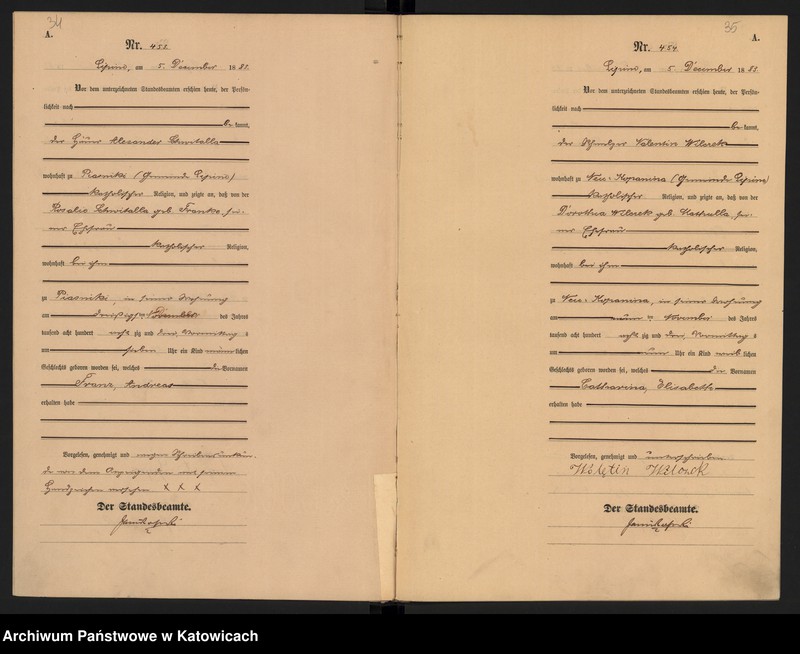 34
A.
Nr. 453.
Lipine, am 5. December 1883.
Vor dem unterzeichneten Standesbeamten erschien heute, der Persön-
lichkeit nach
be kannt,
der Häuer Alexander
wohnhaft zu Piasniki (Gemeinde Lipine)
katholischer Religion, und zeigte an, daß von der
Rosalie geb. Franke, sei-
ner Ehefrau
katholischer Religion,
wohnhaft bei ihm
zu Piasniki, in seiner Wohnung
am des Jahres
tausend acht hundert acht zig und drei, Vormittag s
um sieben Uhr ein Kind männ lichen
Geschlechts geboren worden sei, welches die Vornamen
Franz, Andreas
erhalten habe
Vorgelesen, genehmigt und wegen Schreibensunkun-
de von dem Anzeigenden mit seinem
Handzeichen versehen X X X
Der Standesbeamte.
35
A.
Nr. 454.
Lipine, am 5. December 1883.
Vor dem unterzeichneten Standesbeamten erschien heute, der Persön-
lichkeit nach
be kannt,
der Schmelzer Valentin Wilczek
wohnhaft zu Neu-Kopanina (Gemeinde Lipine)
katholischer Religion, und zeigte an, daß von der
Dorothea Wilczek geb. sei-
ner Ehefrau
katholischer Religion,
wohnhaft bei ihm
zu Neu-Kopanina, in seiner Wohnung
am November des Jahres
tausend acht hundert acht zig und drei, Vormittag s
um neun Uhr ein Kind weib lichen
Geschlechts geboren worden sei, welches die Vornamen
Catharina, Elisabeth
erhalten habe
Vorgelesen, genehmigt und unterschrieben
Der Standesbeamte.
Archiwum Państwowe w Katowicach